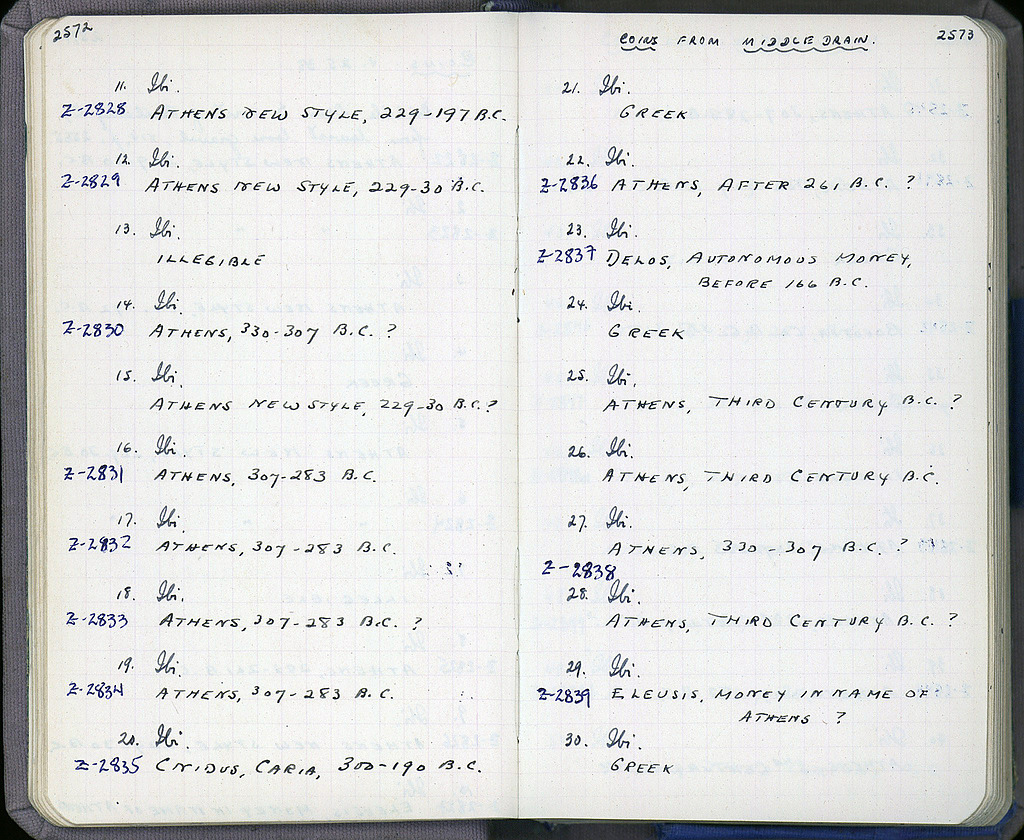 2572
11. Ibi.
Z-2828 ATHENS NEW STYLE, 229-197 B.C.
12. Ibi.
Z-2829 ATHENS NEW STYLE, 229-30 B.C.
13. Ibi.
ILLEGIBLE
14. Ibi.
Z-2830 ATHENS, 330-307 B.C. ?
15. Ibi.
ATHENS NEW STYLE, 229-30 B.C. ?
16. Ibi.
Z-2831 ATHENS, 307-283 B.C.
17. Ibi.
Z-2832 ATHENS, 307-283 B.C.
18. Ibi.
Z-2833 ATHENS, 307-283 B.C. ?
19. Ibi.
Z-2834 ATHENS, 307-283 B.C.
20. Ibi.
Z-2835 CNIDUS, CARIA, 300-190 B.C.
COINS FROM MIDDLE DRAIN. 2573
21. Ibi.
GREEK
22. Ibi.
Z-2836 ATHENS, AFTER 261 B.C. ?
23. Ibi.
Z-2837 DELOS, AUTONOMOUS MONEY,
BEFORE 166 B.C.
24. Ibi.
GREEK
25. Ibi.
ATHENS, THIRD CENTURY B.C. ?
26. Ibi.
ATHENS, THIRD CENTURY B.C.
27. Ibi.
ATHENS, 330-307 B.C. ?
Z-2838
28. Ibi.
ATHENS, THIRD CENTURY B.C. ?
29. Ibi.
Z-2839 ELEUSIS, MONEY IN NAME OF
ATHENS ?
30. Ibi.
GREEK